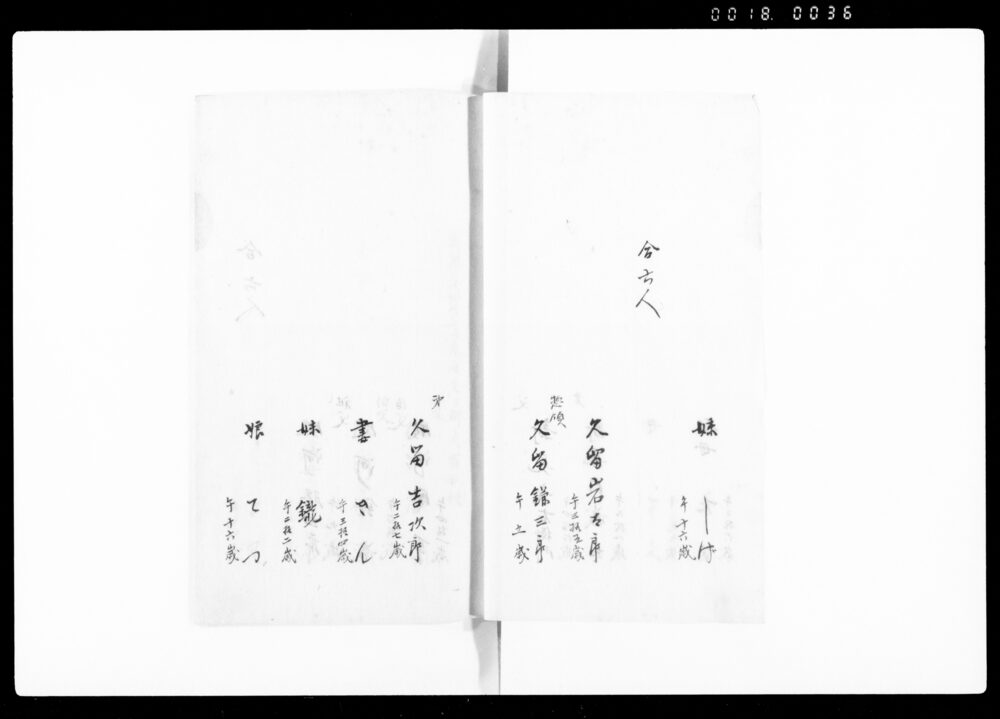 0018. 0036
妹 しげ
午十六歳
合六人
久留岩太郎
午三拾五歳
惣領
久留鎌三郎
午五歳
弟
久留吉次郎
午二拾七歳
妻 きん
午三拾四歳
妹 鐵
午二拾二歳
娘 てつ
午十六歳